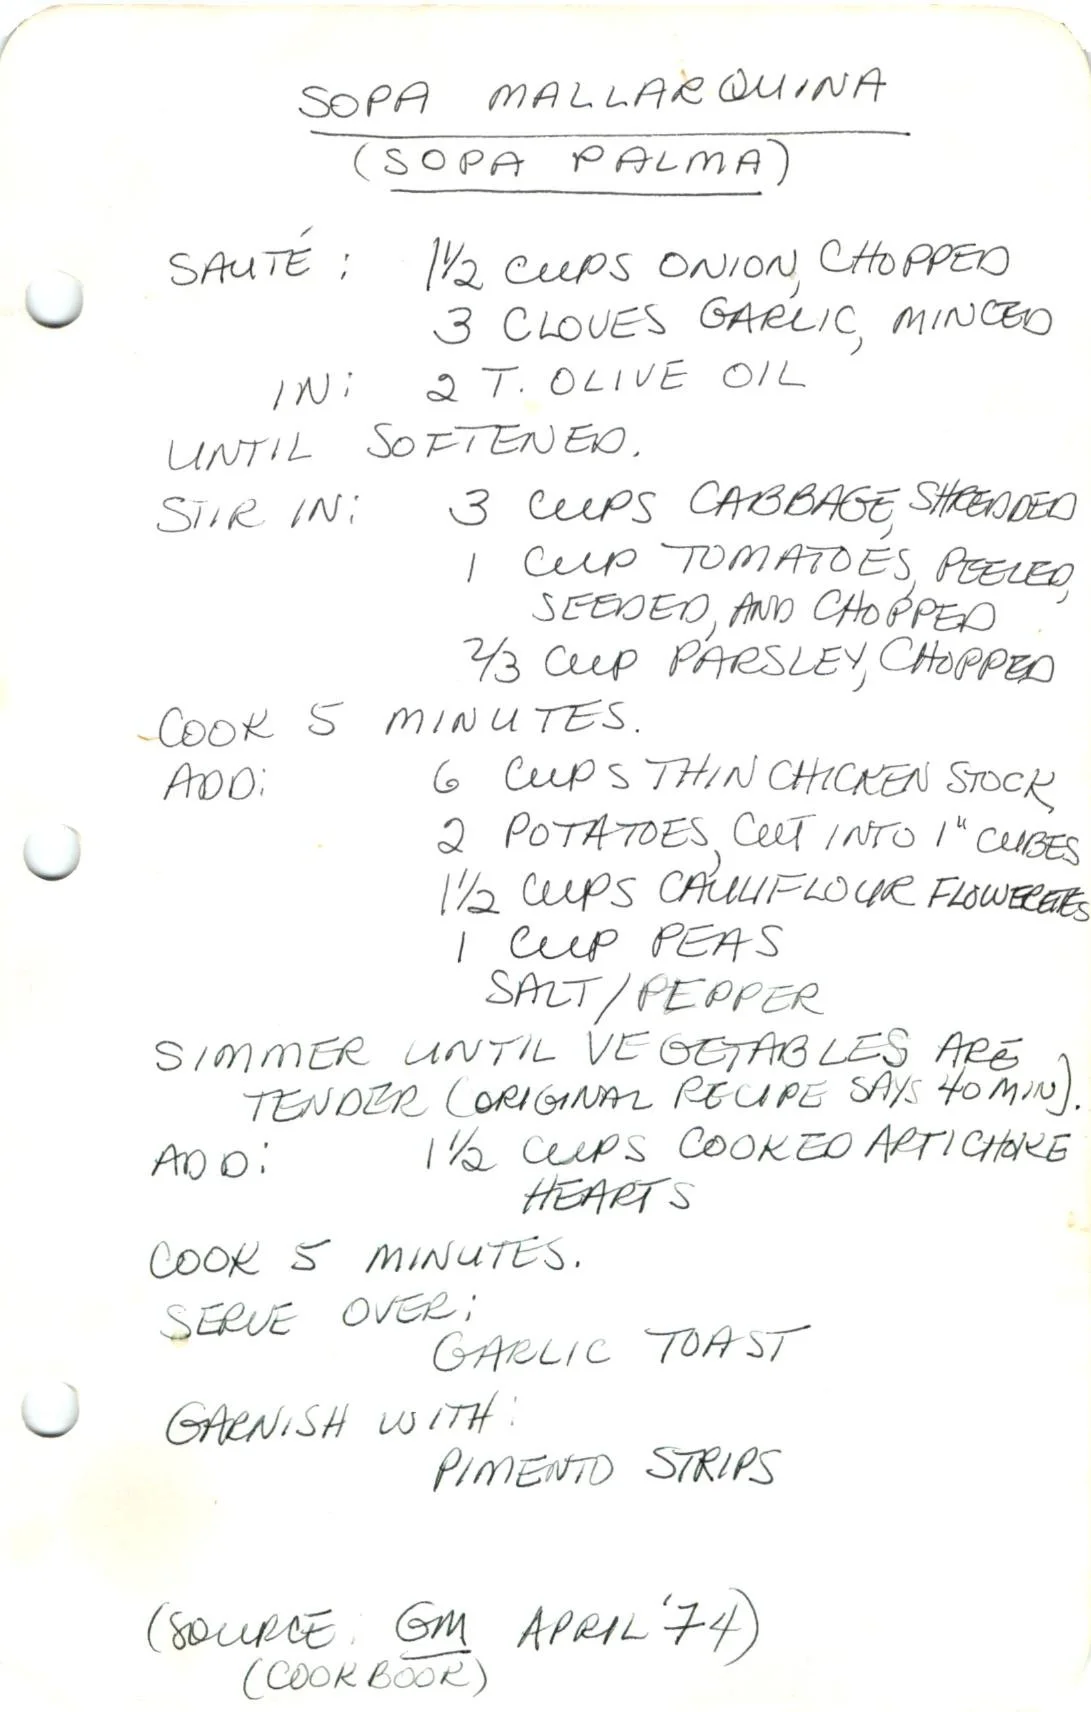 SOPA MALLARQUINA
(SOPA PALMA)
SAUTÉ: 1 1/2 CUPS ONION, CHOPPED
3 CLOVES GARLIC, MINCED
IN: 2 T. OLIVE OIL
UNTIL SOFTENED.
STIR IN: 3 CUPS CABBAGE, SHREDDED
1 CUP TOMATOES, PEELED,
SEEDED, AND CHOPPED
2/3 CUP PARSLEY, CHOPPED
COOK 5 MINUTES.
ADD: 6 CUPS THIN CHICKEN STOCK
2 POTATOES, CUT INTO 1" CUBES
1 1/2 CUPS CAULIFLOUR FLOWERETES
1 CUP PEAS
SALT/PEPPER
SIMMER UNTIL VEGETABLES ARE
TENDER (ORIGINAL RECIPE SAYS 40 MIN).
ADD: 1 1/2 CUPS COOKED ARTICHOKE
HEARTS
COOK 5 MINUTES.
SERVE OVER:
GARLIC TOAST
GARNISH WITH:
PIMENTO STRIPS
(SOURCE: GM APRIL '74)
(COOKBOOK)